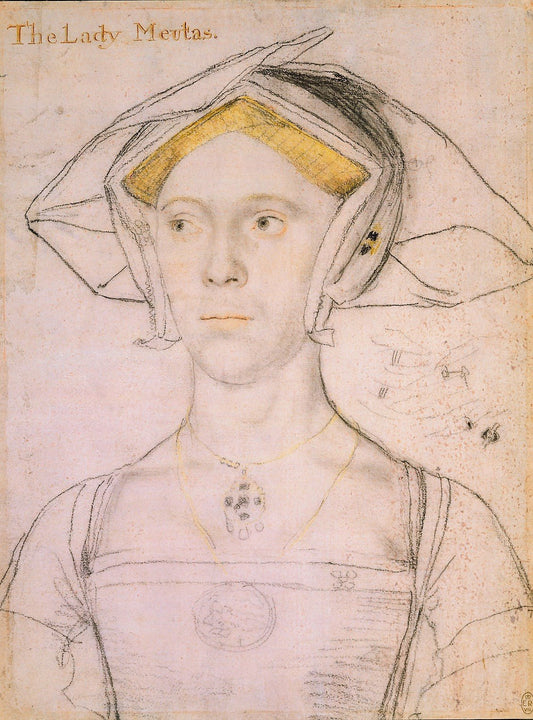 The Lady Meutas.
ER